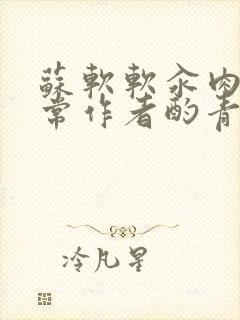 蘇軟軟汆肉
常作者酌青
冷凡星